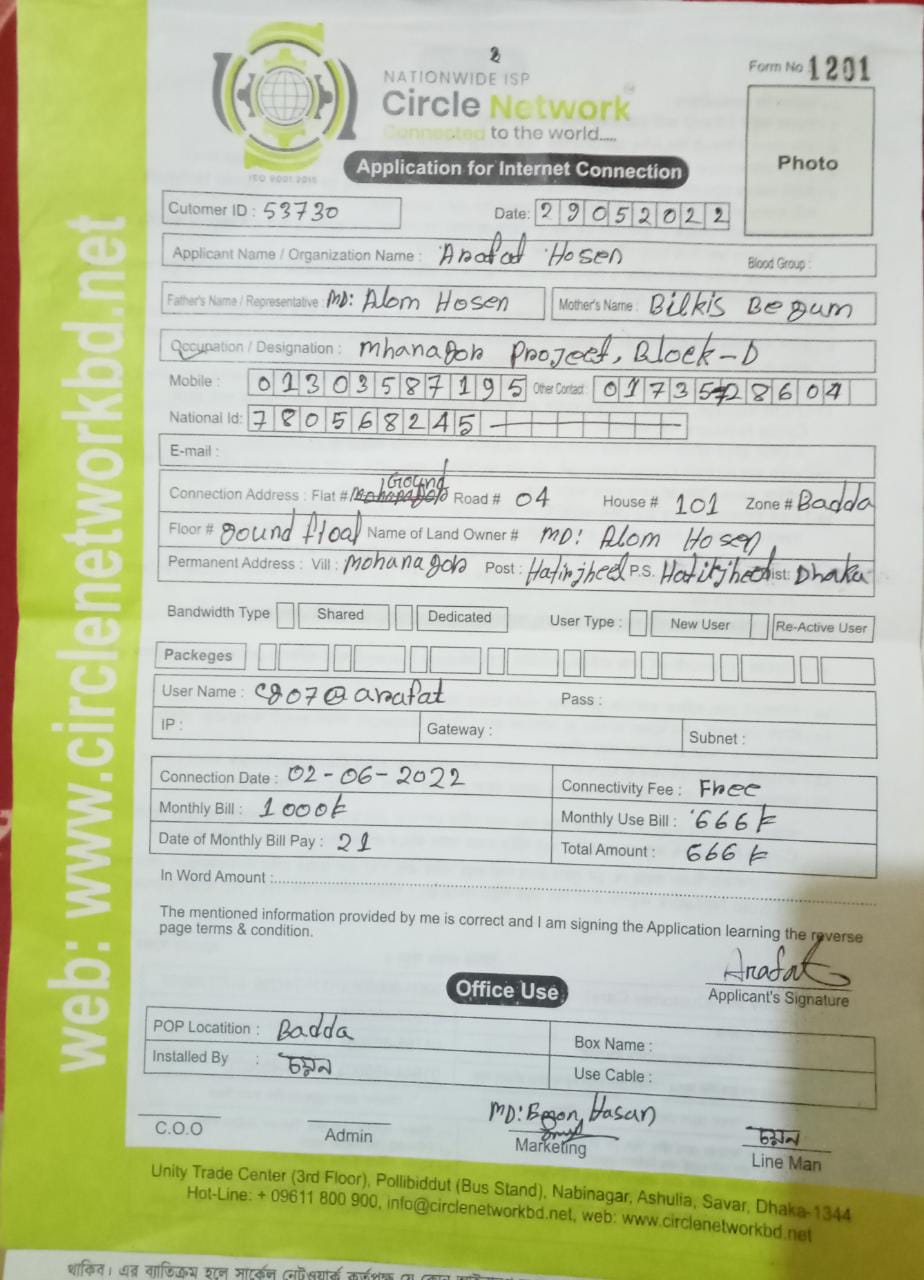 2
NATIONWIDE ISP
Circle Network
Connected to the world.....
ISO 9001:2015
Form No 1201
Photo
Application for Internet Connection
Cutomer ID : 53730
Date: 29052022
Applicant Name / Organization Name : Arafat Hosen
Blood Group :
Father's Name / Representative : MD: Alom Hosen
Mother's Name : Bilkis Begum
Occupation / Designation : Mhanagor Project, Block-D
Mobile : 01303587195 Other Contact : 01735728604
National Id: 780568245
E-mail :
Connection Address : Flat # Ground Road # 04 House # 101 Zone # Badda
Floor # gound floal Name of Land Owner # MD: Alom Hosen
Permanent Address : Vill : Mohanagor Post : Hatirjheel P.S. Hatirjheel Dist: Dhaka
Bandwidth Type Shared Dedicated User Type : New User Re-Active User
Packeges
User Name : c807@arafat Pass :
IP : Gateway : Subnet :
Connection Date : 02-06-2022 Connectivity Fee : Free
Monthly Bill : 1000৳ Monthly Use Bill : 666৳
Date of Monthly Bill Pay : 21 Total Amount : 666৳
In Word Amount :
The mentioned information provided by me is correct and I am signing the Application learning the reverse
page terms & condition.
Arafat
Applicant's Signature
Office Use
POP Locatition : Badda Box Name :
Installed By : চয়ন Use Cable :
MD: Hasan চয়ন
C.O.O Admin Marketing Line Man
Unity Trade Center (3rd Floor), Pollibiddut (Bus Stand), Nabinagar, Ashulia, Savar, Dhaka-1344
Hot-Line: + 09611 800 900, info@circlenetworkbd.net, web: www.circlenetworkbd.net
web: www.circlenetworkbd.net
থাকিব। এর ব্যতিক্রম হলে সার্কেল নেটওয়ার্ক কর্তৃপক্ষ যে কোন